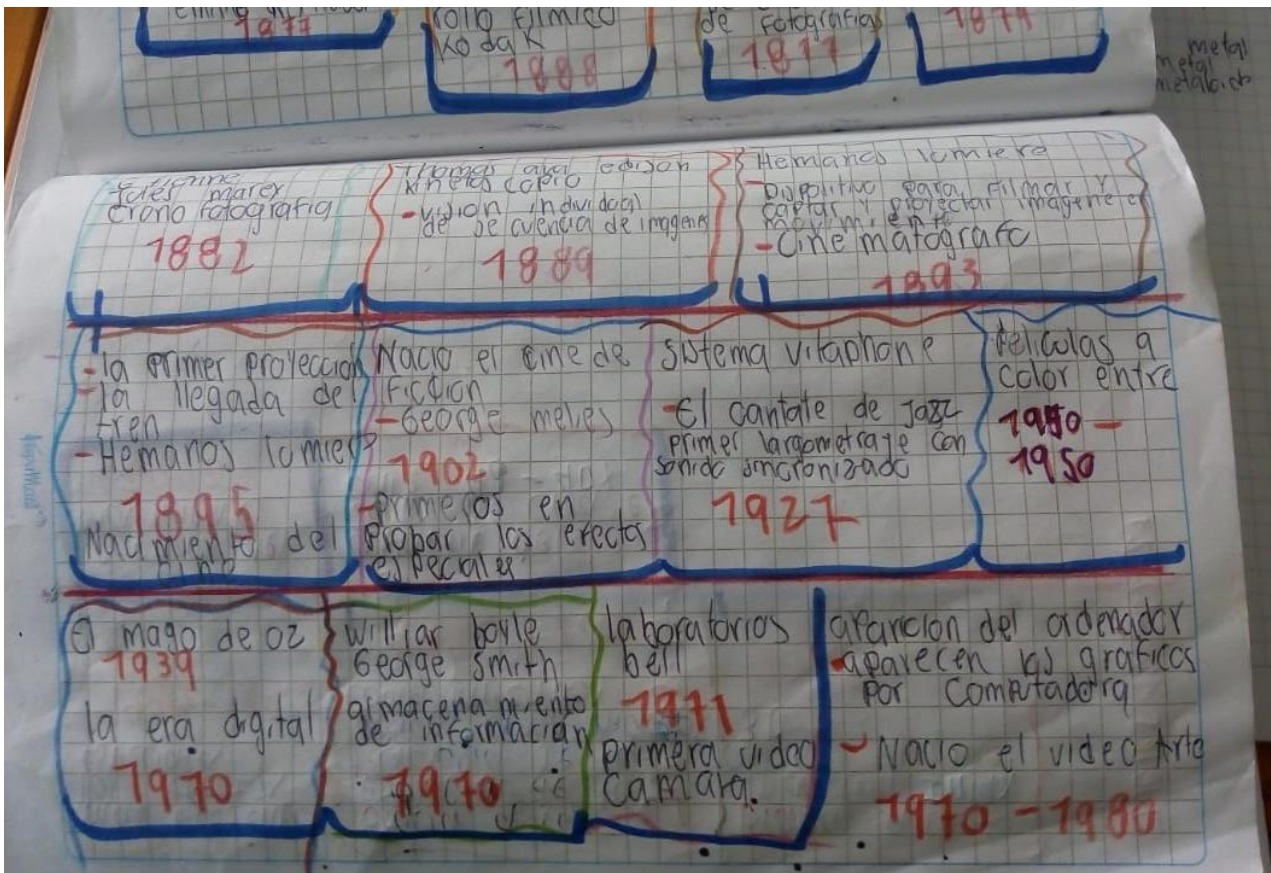 1877
rollo filmico
Kodak
1888
de fotografia
1877
1877
metal
metal
metalo.cb
Jules marey
Crono fotografia
1882
Thomas alva edison
kinetoscopio
-vision individual
de secuencia de imagenes
1889
Hemanos lumiere
-Dispositivo para filmar y
captar y proyectar imagene en
movimiento
-Cinematografo
1893
-la primer proyeccion
-la llegada del
tren
-Hemanos lumiere
1895
Nacimiento del
cine
Nacio el cine de
ficcion
-George melies
1902
-primeros en
probar los efectos
especiales
sistema vitaphone
-El cantate de Jazz
primer largometraje con
sonido sincronizado
1927
peliculas a
color entre
1940 -
1950
El mago de oz
1939
la era digital
1970
williar boyle
George Smith
almacenamiento
de informacian
1970
laboratorios
bell
1971
primera video
camara.
aparicion del ordenador
-aparecen las graficas
por computadora
- Nacio el video Arte
1970 - 1980